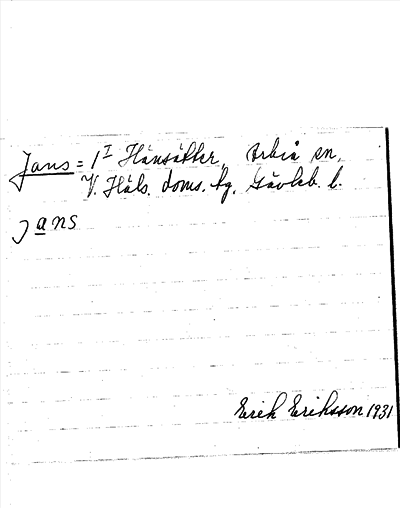 Jans = 1 I Hänsätter, Arbrå sn,
V. Häls. doms. fg, Gävleb. l.
jans
Erik Eriksson 1931